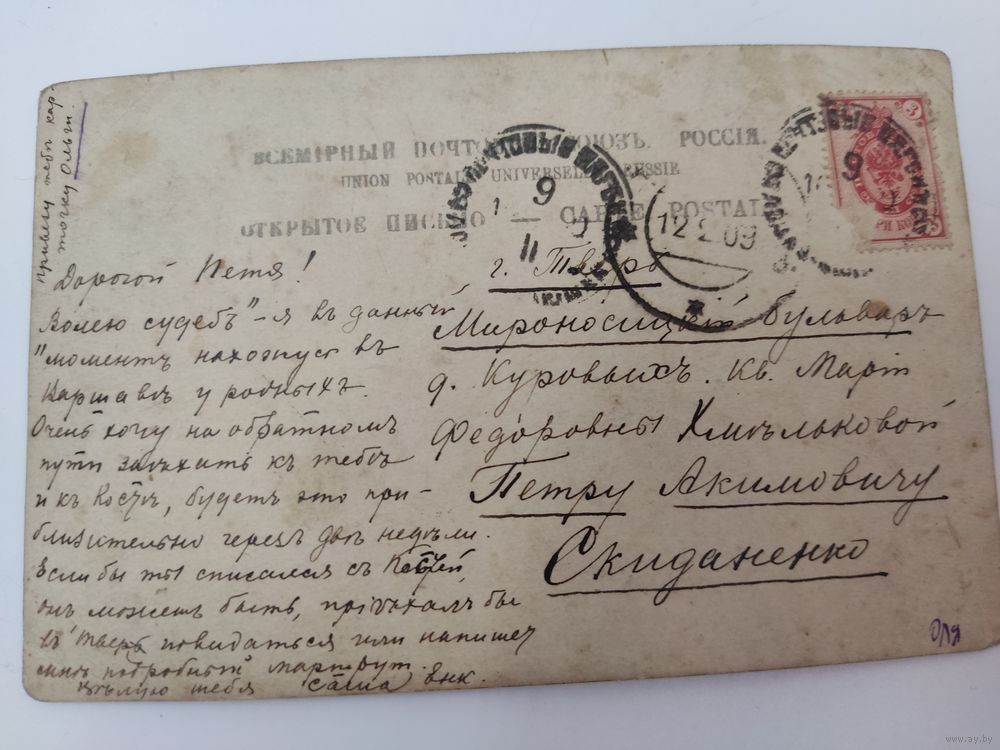 ВСЕМІРНЫЙ ПОЧТОВЫЙ СОЮЗЪ. РОССІЯ.
UNION POSTALE UNIVERSELLE. RUSSIE
ОТКРЫТОЕ ПИСЬМО — CARTE POSTALE
3
9
9
12 2 09
г. Тверь
Мироносицкій бульваръ
д. Куровыхъ. Кв. Маріи
Федоровны Хмѣльковой
Петру Акимовичу
Скиданенко
Оля
привезу тебѣ кар-
точку Ольги.
Дорогой Петя!
Волею судебъ" - я въ данный
"моментъ нахожусь въ
Варшавѣ у родныхъ.
Очень хочу на обратномъ
пути заѣхать къ тебѣ
и къ Костѣ, будетъ это при-
близительно черезъ двѣ недѣли.
Если бы ты списался съ Костей,
онъ можетъ быть, пріѣхалъ бы
въ Тверь повидаться или напишет
мнѣ подробный маршрут.
цѣлую тебя Саша